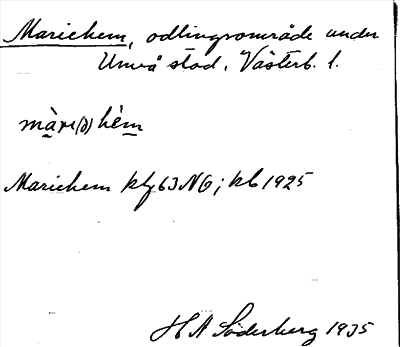 Mariehem, odlingsområde under
Umeå stad. Västerb. l.
màrı(ə)hèm
Mariehem kbf 63 NO; kb 1925
H A Söderberg 1935